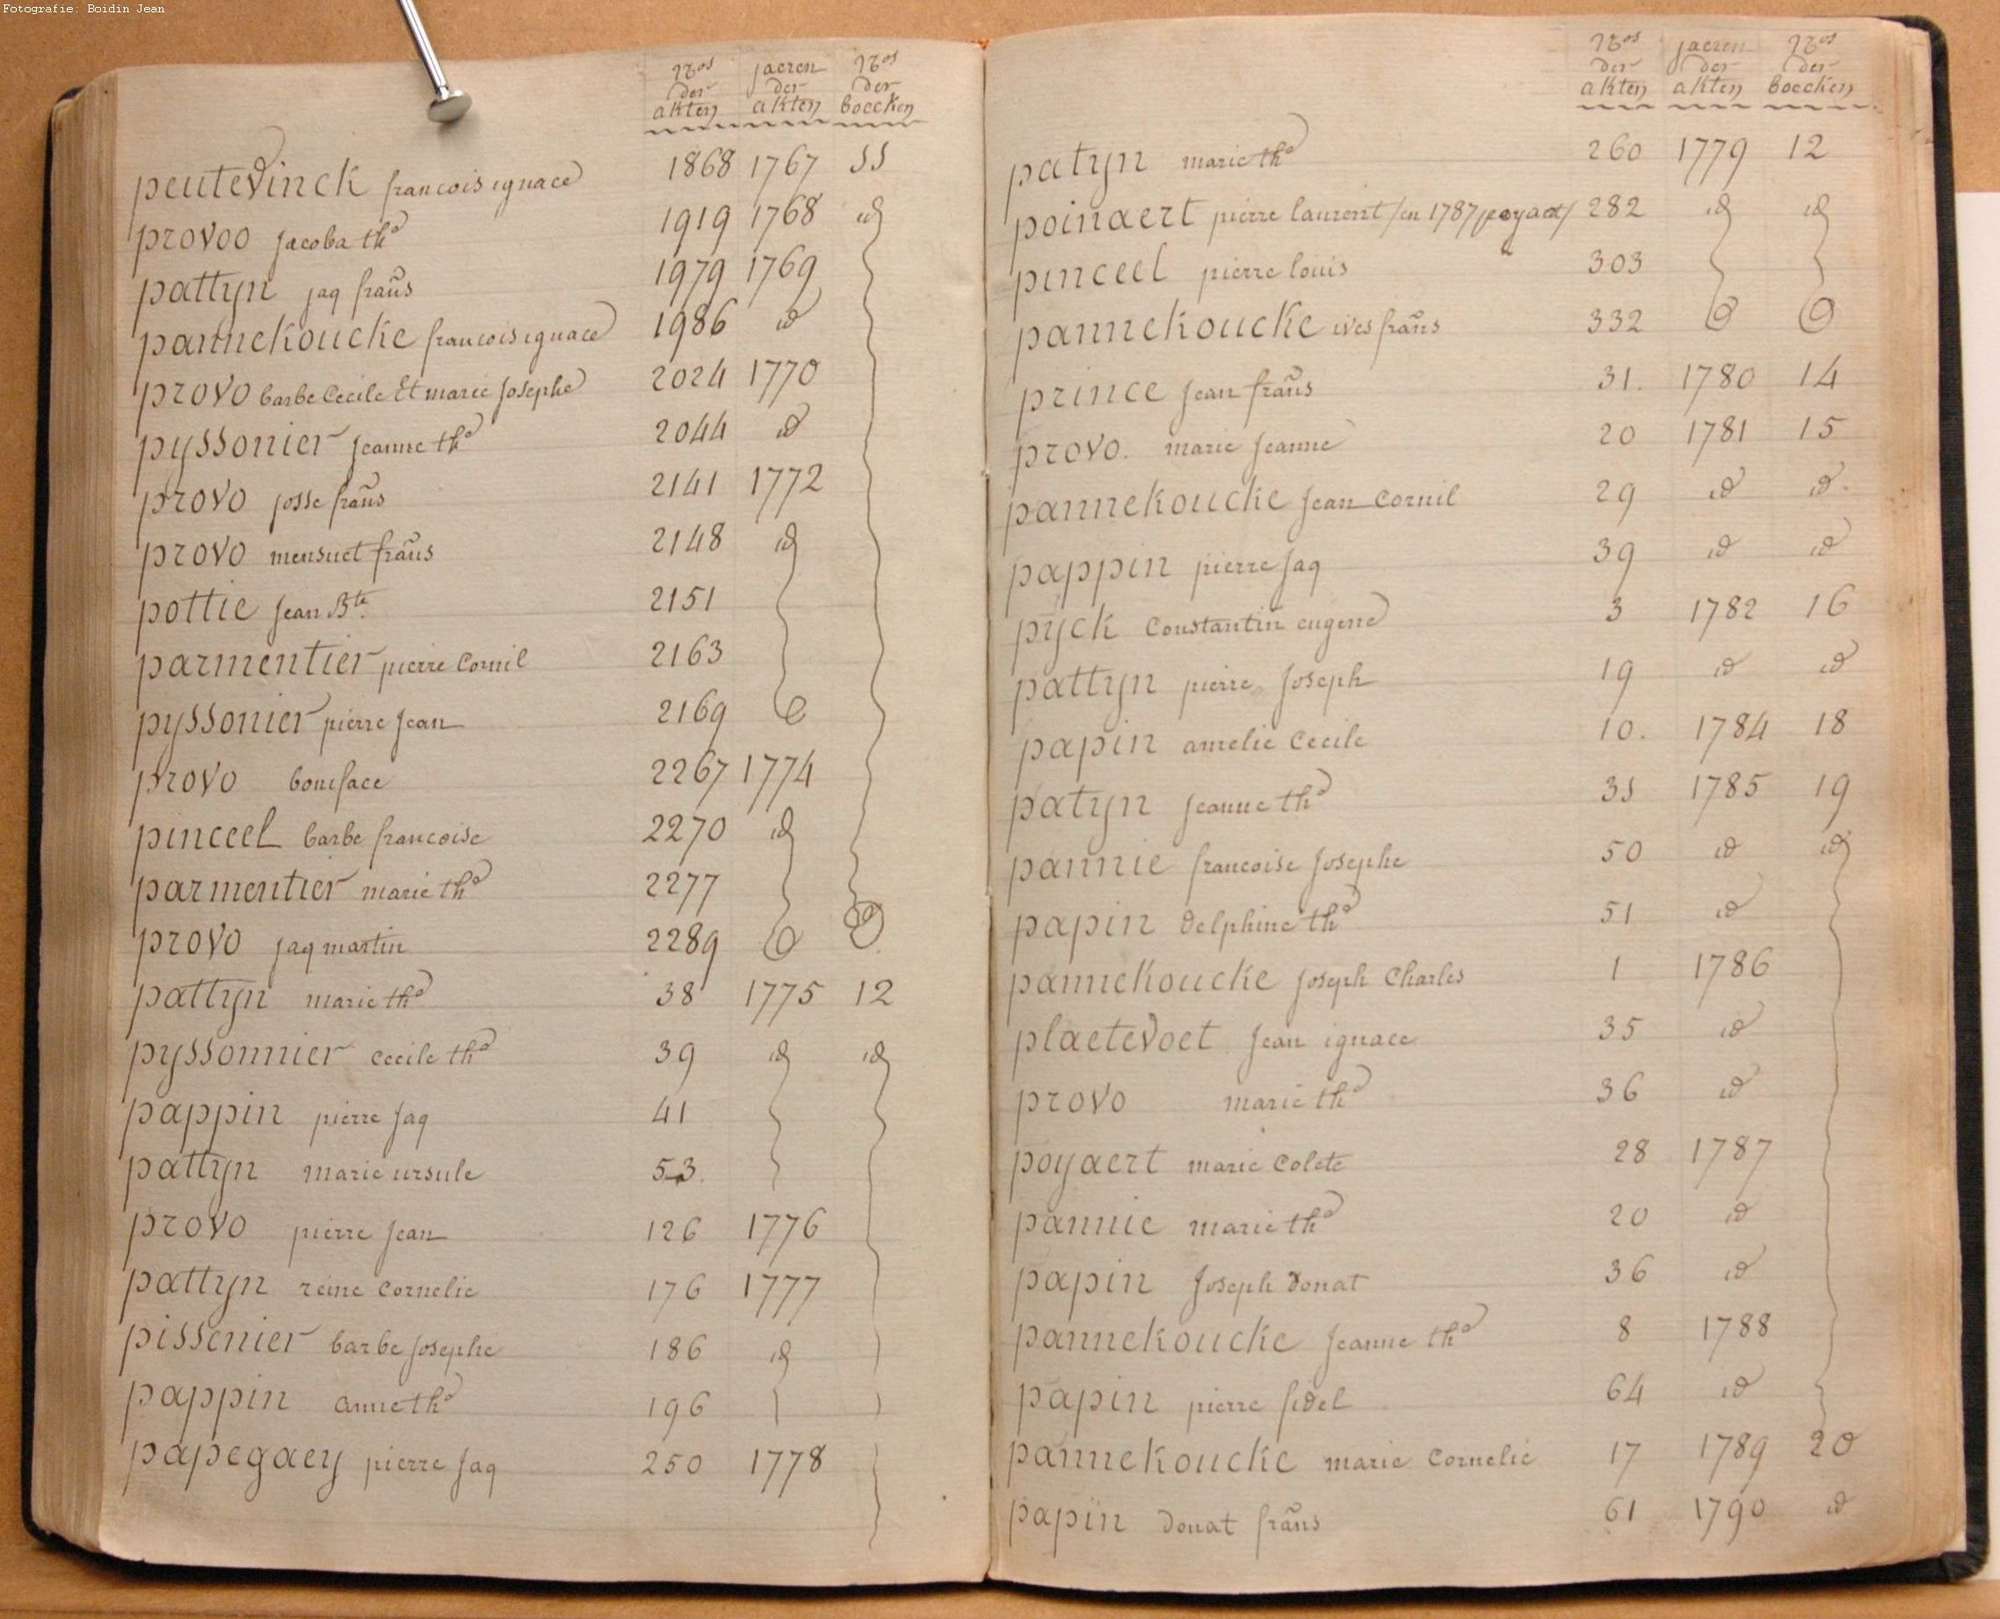 Fotografie: Boidin Jean
Nos der akten jaeren der akten Nos der boecken
peutevinck francois ignace 1868 1767 SS
provoo Jacoba the 1919 1768 id
pattyn jaq frans 1979 1769
pannekoucke francois ignace 1986 id
provo barbe Cecile Et marie Josephe 2024 1770
pyssonier Jeanne the 2044 id
provo josse frans 2141 1772
provo mensuet frans 2148 id
pottie Jean Bte 2151
parmentier pierre Cornil 2163
pyssonier pierre Jean 2169
provo boniface 2267 1774
pinceel barbe francoise 2270 id
parmentier marie the 2277
provo jaq martin 2289
pattyn marie the 38 1775 12
pyssonnier cecile the 39 id id
pappin pierre Jaq 41
pattyn marie ursule 53.
provo pierre Jean 126 1776
pattyn reine cornelie 176 1777
pissenier barbe Josephe 186 id
pappin anne the 196
papegaey pierre Jaq 250 1778
Nos der akten jaeren der akten Nos der boecken
patyn marie the 260 1779 12
poinaert pierre laurent /en 1787 / 282 id id
pinceel pierre louis 303
pannekoucke ives frans 332
prince Jean frans 31. 1780 14
provo. marie Jeanne 20 1781 15
pannekoucke Jean Cornil 29 id id.
pappin pierre Jaq 39 id id
pyck Constantin eugene 3 1782 16
pattyn pierre Joseph 19 id id
papin amelie Cecile 10. 1784 18
patyn Jeanne the 35 1785 19
pannie francoise Josephe 50 id id
papin Delphine the 51 id
pannekoucke Joseph Charles 1 1786
plaetevoet Jean ignace 35 id
provo marie the 36 id
poyaert marie Colete 28 1787
pannie marie the 20 id
papin Joseph Donat 36 id
pannekoucke Jeanne the 8 1788
papin pierre fidel 64 id
pannekoucke marie Cornelie 17 1789 20
papin Donat frans 61 1790 id